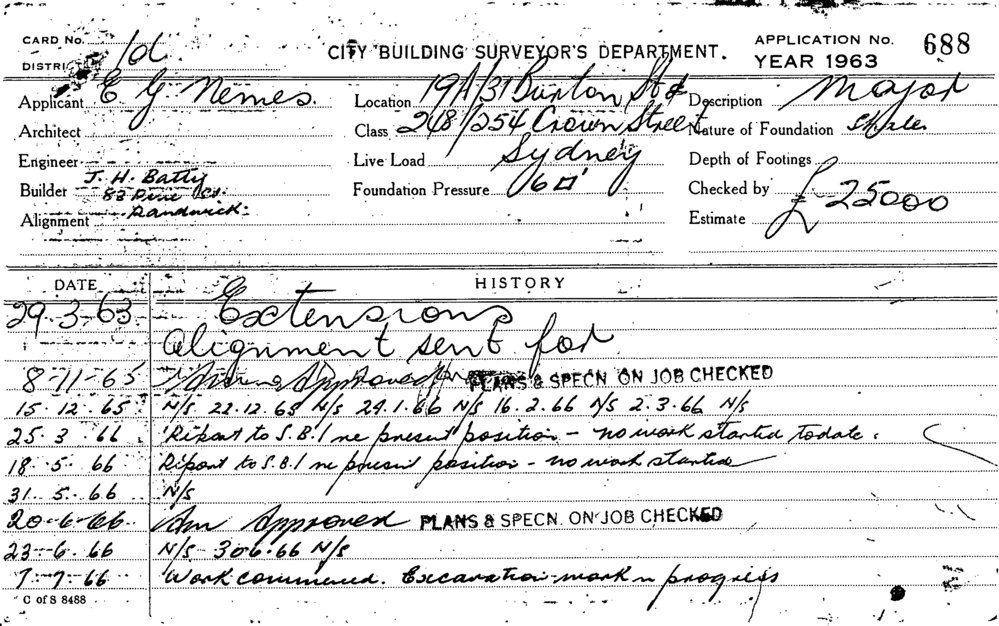 CARD No. 1d
CITY BUILDING SURVEYOR'S DEPARTMENT.
APPLICATION No. 688
DISTRI
YEAR 1963
Applicant E G Nemes.
Location 19A/31 Burton St &
Description Major
Architect
Class 248/254 Crown Street
Nature of Foundation Shale
Engineer
Live Load Sydney
Depth of Footings
Builder J. H. Batty
83 Pine St.
Foundation Pressure 6 □'
Checked by
Alignment Randwick.
Estimate £25000
DATE HISTORY
29-3-63 Extensions
Alignment sent for
8-11-65 Approved PLANS & SPECN. ON JOB CHECKED
15.12.65 N/S 22.12.65 N/S 24.1.66 N/S 16.2.66 N/S 2.3.66 N/S
25.3.66 Report to S.B.I re present position - no work started todate.
18.5.66 Report to S.B.I re present position - no work started
31.5.66 N/S
20-6-66 Am Approved PLANS & SPECN. ON JOB CHECKED
23-6.66 N/S - 30.6.66 N/S
7-7-66 Work commenced. Excavation work in progress
C of S 8488